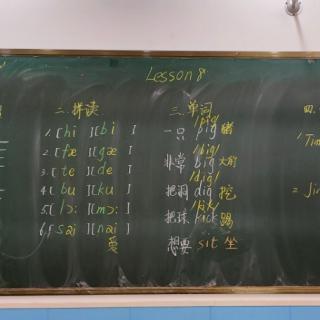 Lesson 8
二.拼读
1.[hi][bi]
2.[fæ][gæ]
3.[te][de]
4.[bu][ku]
5.[lɔ:][mɔ:]
6.[sai][nai]
爱
三.单词
/pig/
一只 pig 猪
/big/
非常 big 大的
/dig/
把洞 dig 挖
/kik/
把球 kick 踢
想要 sit 坐
四.
1 Tim
2 Jim